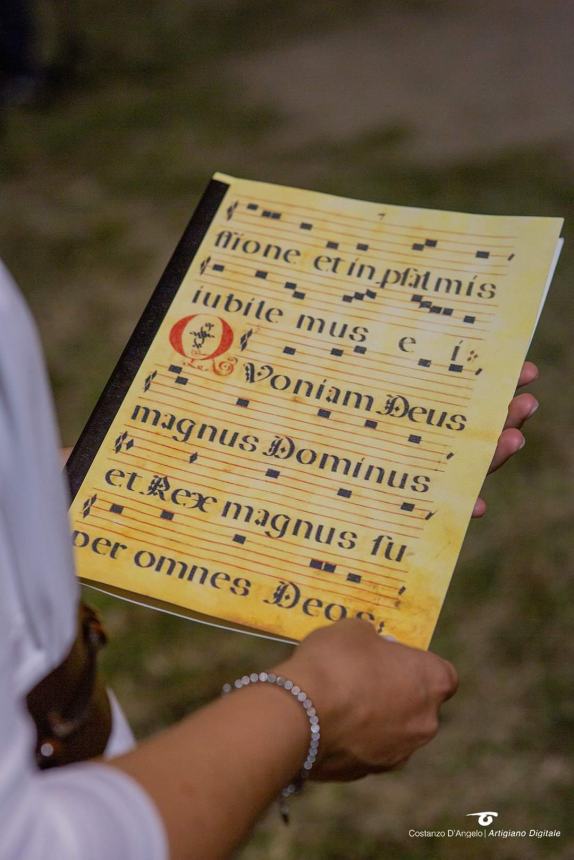 7
ſſione et in pſalmis
iubile mus e i:
QVoniam Deus
magnus Dominus
et Rex magnus ſu
per omnes Deos:
Costanzo D'Angelo | Artigiano Digitale